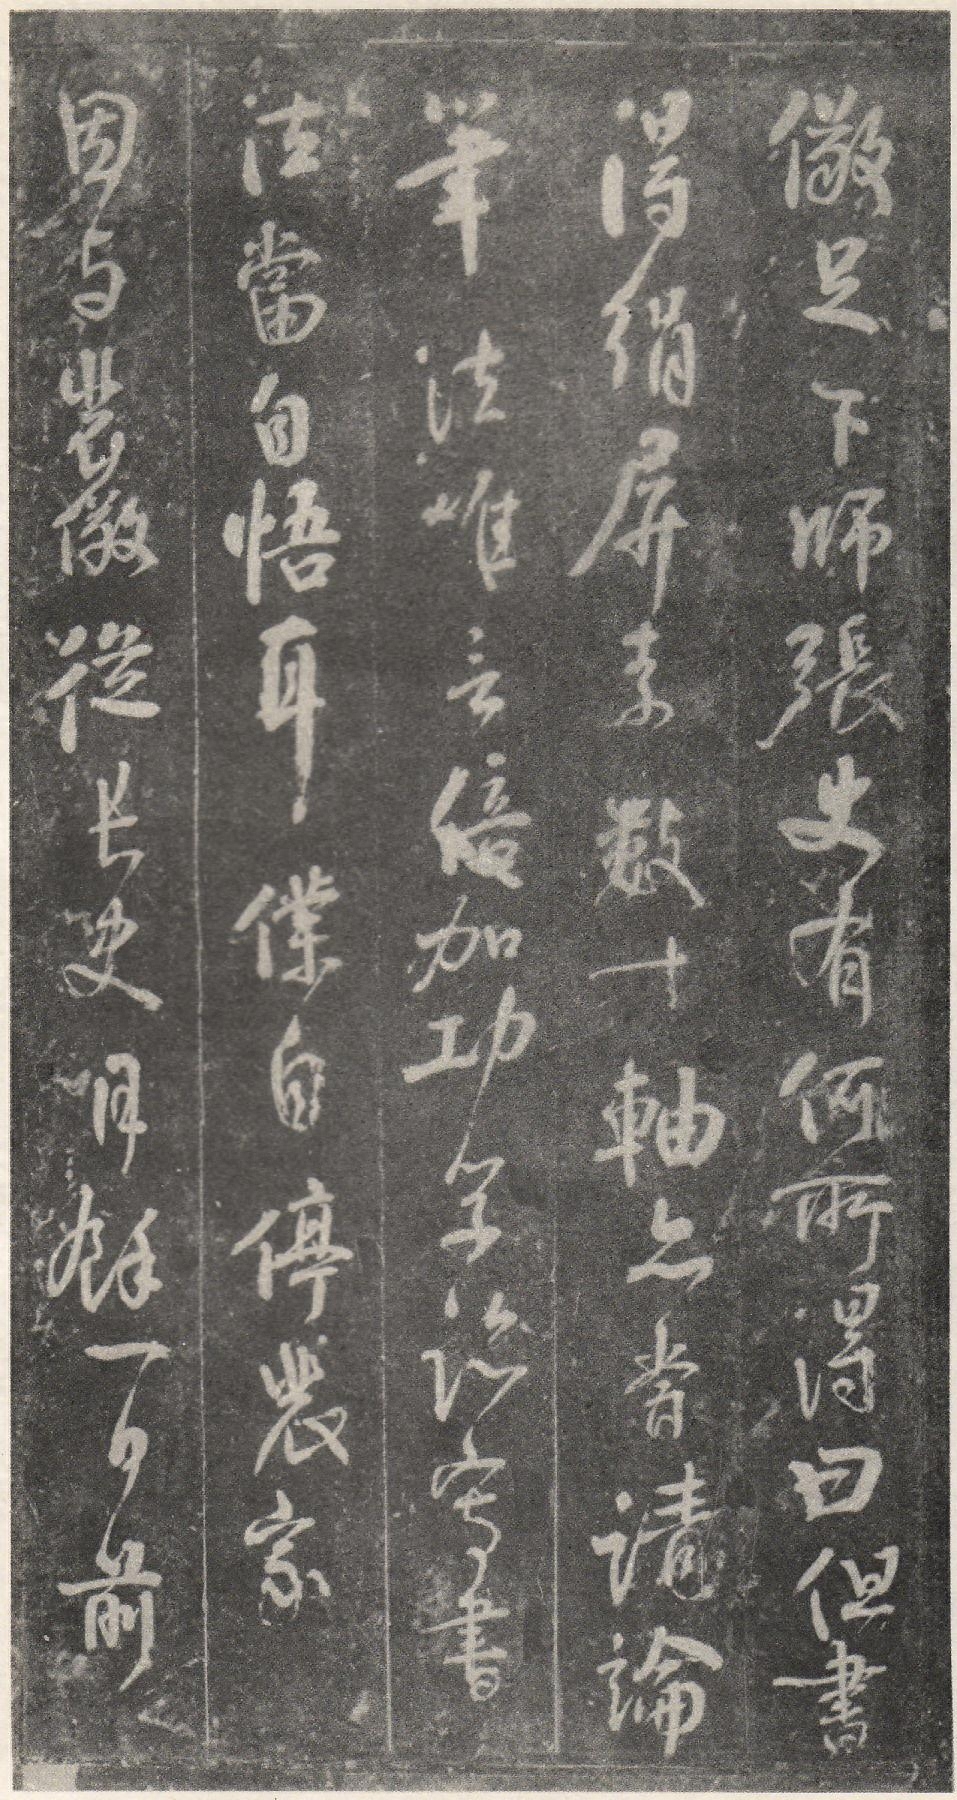 儆足下師張史有何所得曰但書
得絹屏素數十軸亦嘗請論
筆法唯言倍加功學臨寫書
法當自悟耳僕自停裴家
因與裴儆從長史月餘一日前